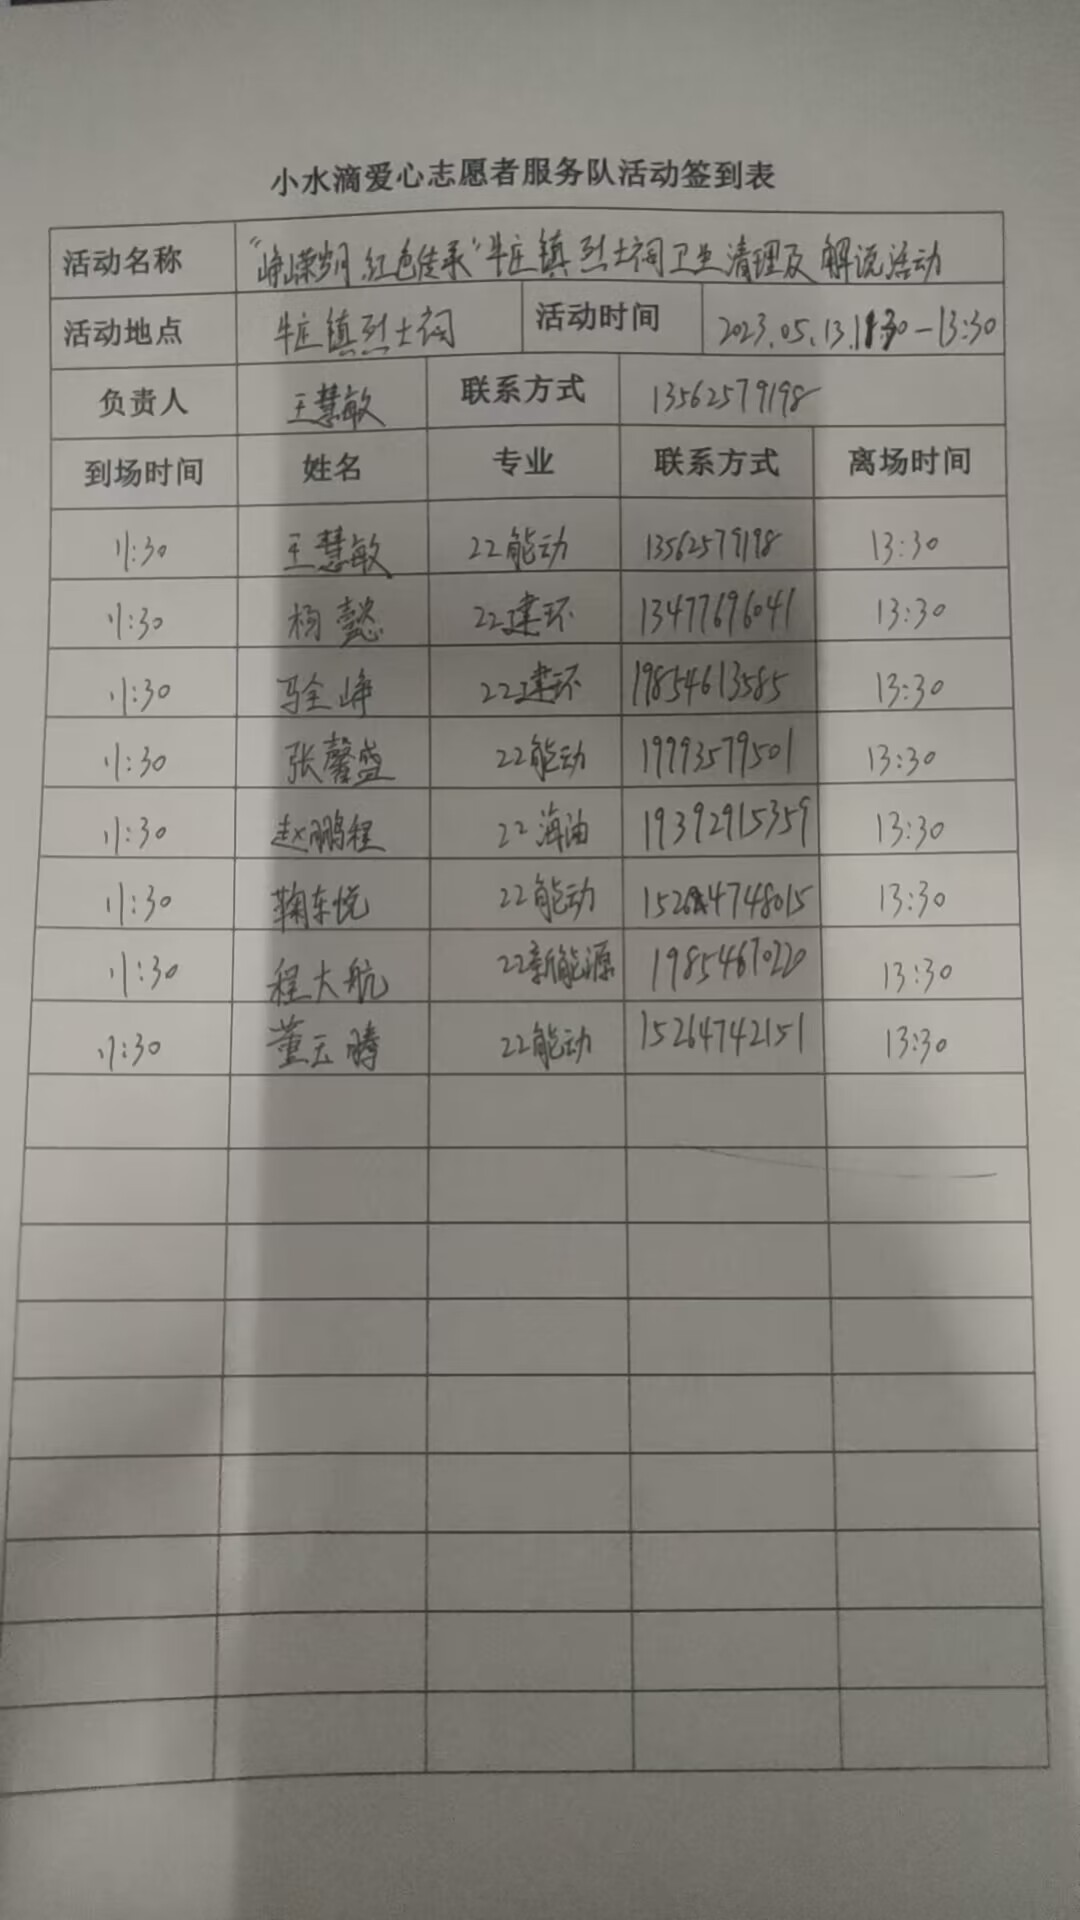 小水滴爱心志愿者服务队活动签到表
活动名称 "峥嵘岁月 红色传承"牛庄镇烈士祠卫生清理及解说活动
活动地点 牛庄镇烈士祠 活动时间 2023.05.13.11:30-13:30
负责人 王慧敏 联系方式 13562579198
到场时间 姓名 专业 联系方式 离场时间
11:30 王慧敏 22能动 13562579198 13:30
11:30 杨懿 22建环 13477696041 13:30
11:30 骀全峥 22建环 19854613585 13:30
11:30 张馨盛 22能动 19993579501 13:30
11:30 赵鹏程 22海油 19392915359 13:30
11:30 鞠东悦 22能动 13:30
11:30 程大航 22新能源 19854670220 13:30
11:30 董玉腾 22能动 15264742151 13:30